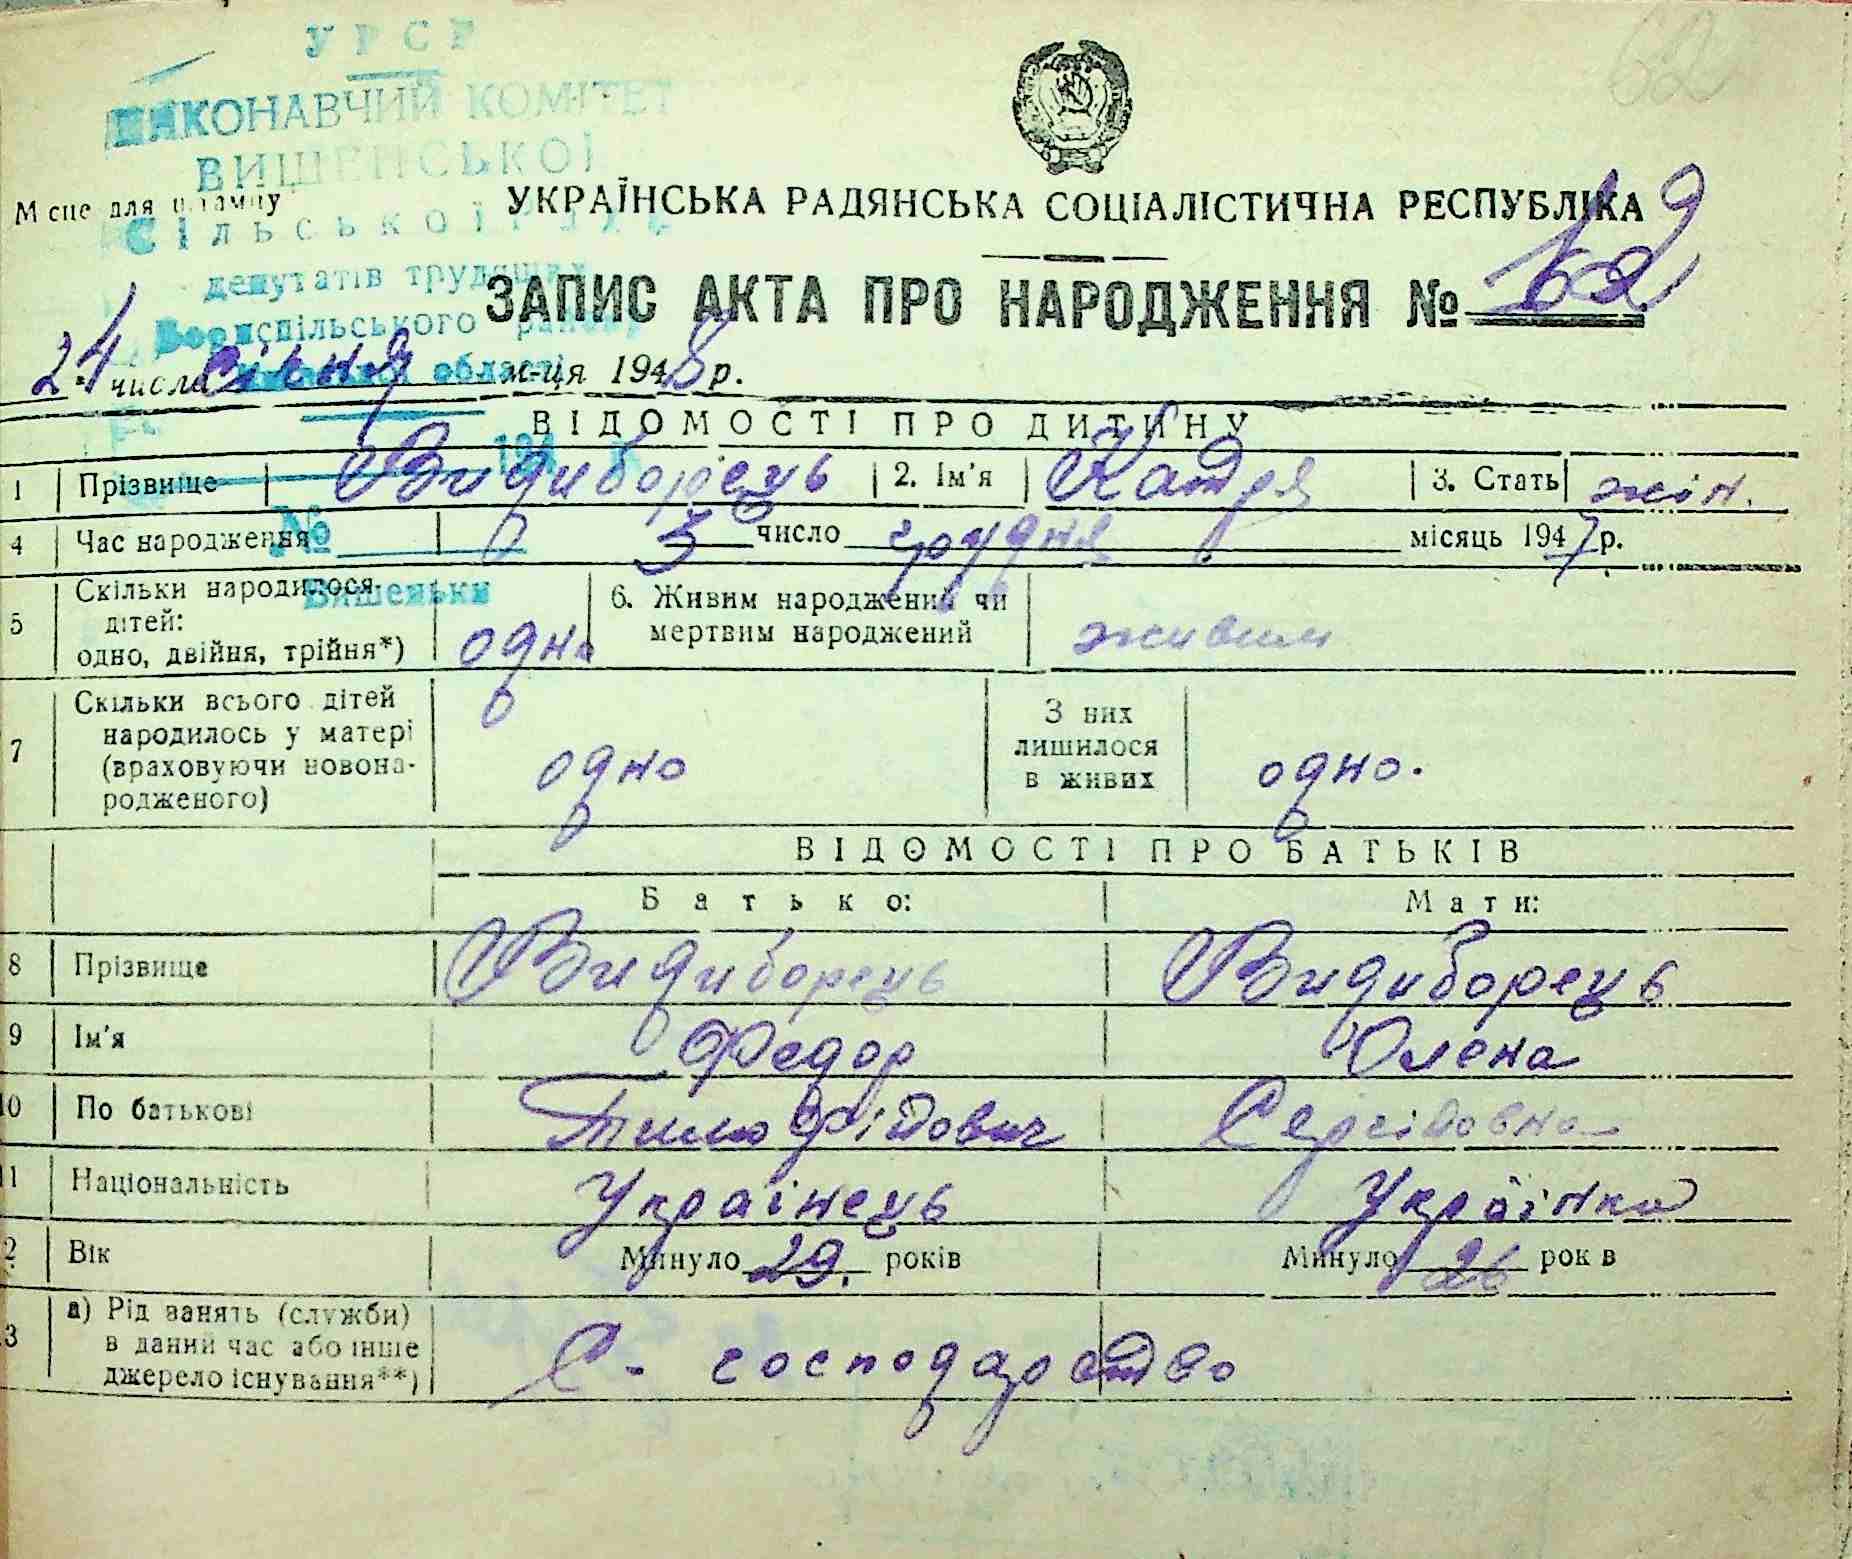 У Р С Р
ВИКОНАВЧИЙ КОМІТЕТ
ВИШЕНСЬКОЇ
Сільської Ради
депутатів трудящих
Бориспільського району
області
194 р.
№
Вишеньки
62
Місце для штампу
УКРАЇНСЬКА РАДЯНСЬКА СОЦІАЛІСТИЧНА РЕСПУБЛІКА
ЗАПИС АКТА ПРО НАРОДЖЕННЯ № 62
24 числа січня м-ця 1948 р.
ВІДОМОСТІ ПРО ДИТИНУ
1 Прізвище Видиборець 2. Ім'я Катря 3. Стать жін.
4 Час народження 3 число грудня місяць 1947 р.
5 Скільки народилося дітей: одно, двійня, трійня*) одно 6. Живим народжений чи мертвим народжений живим
7 Скільки всього дітей народилось у матері (враховуючи новонародженого) одно З них лишилося в живих одно.
ВІДОМОСТІ ПРО БАТЬКІВ
Батько: Мати:
8 Прізвище Видиборець Видиборець
9 Ім'я Федор Олена
10 По батькові Тимофійович Сергійовна
11 Національність Українець Українка
12 Вік Минуло 29. років Минуло 26 років
13 а) Рід занять (служби) в даний час або інше джерело існування**) С. господарство